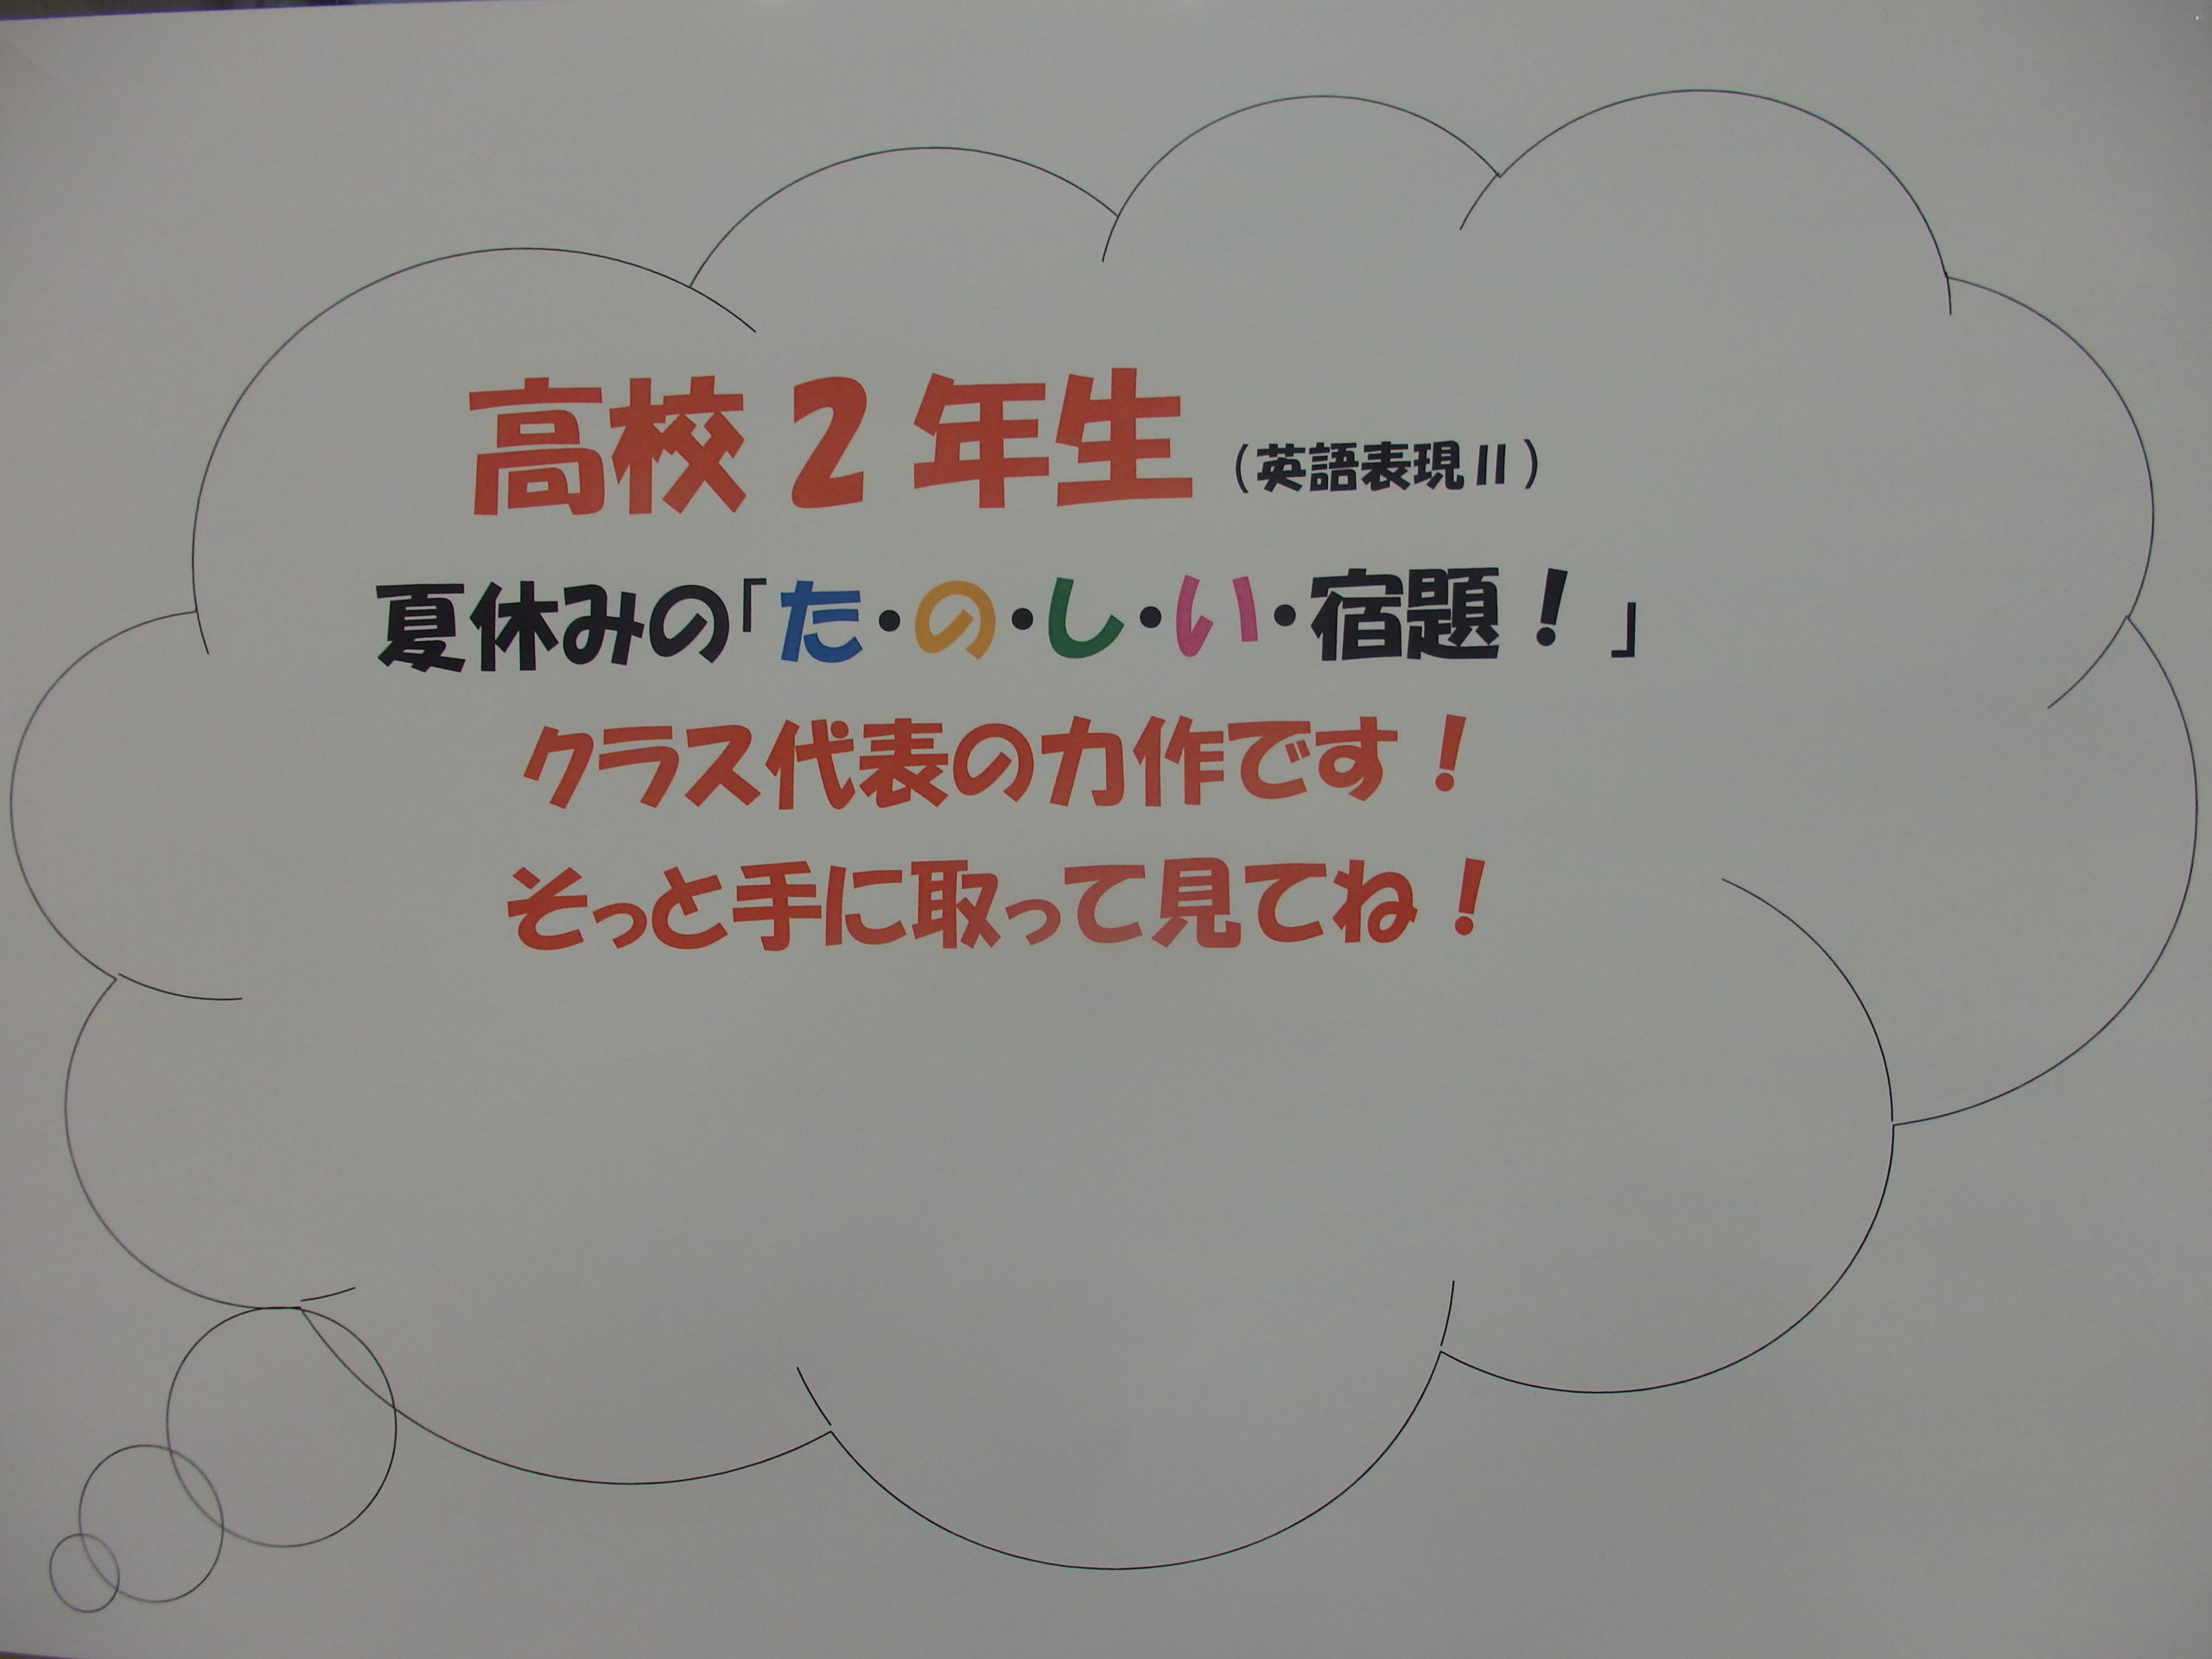 高校２年生（英語表現Ⅱ）
夏休みの「た・の・し・い・宿題！」
クラス代表の力作です！
そっと手に取って見てね！